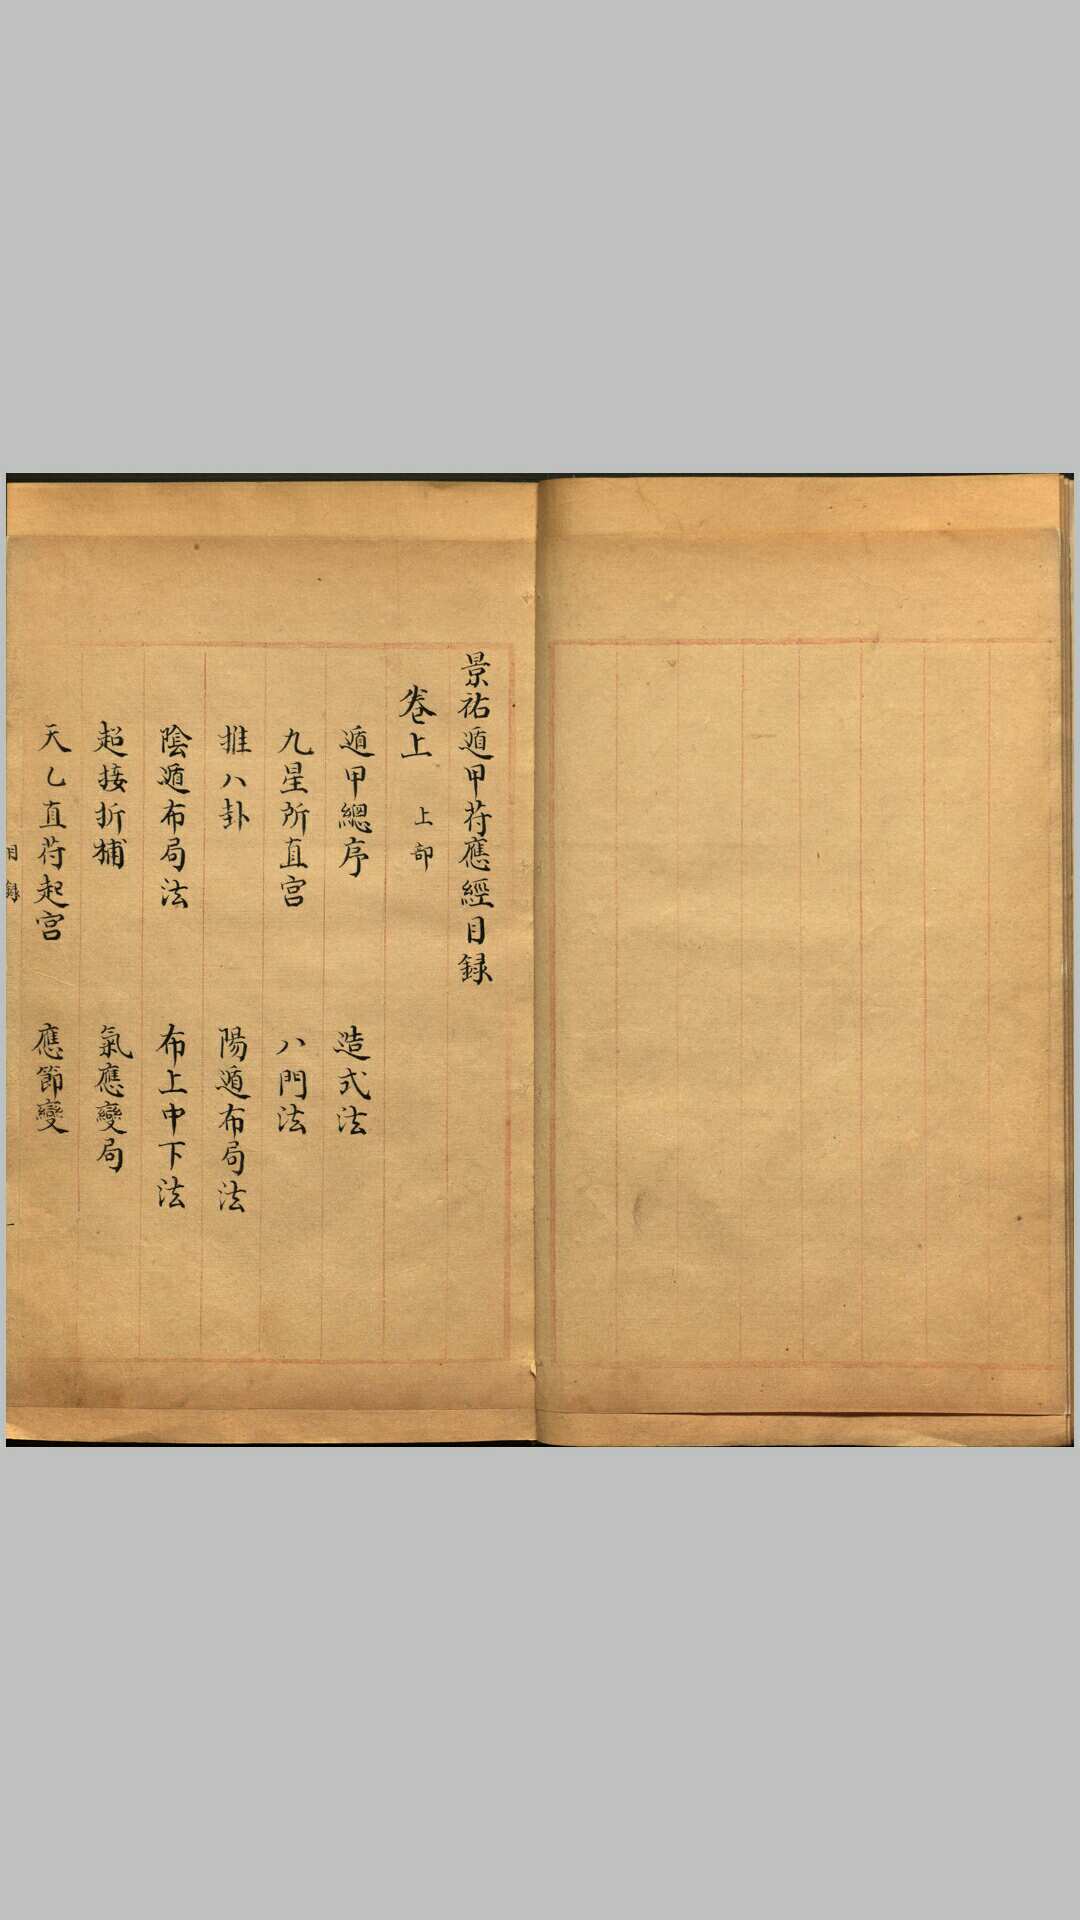 景祐遁甲苻應經目録
卷上 上部
遁甲總序 造式法
九星所直宮 八門法
推八卦 陽遁布局法
陰遁布局法 布上中下法
超接折補 氣應變局
天乙直苻起宮 應節變
目録 一